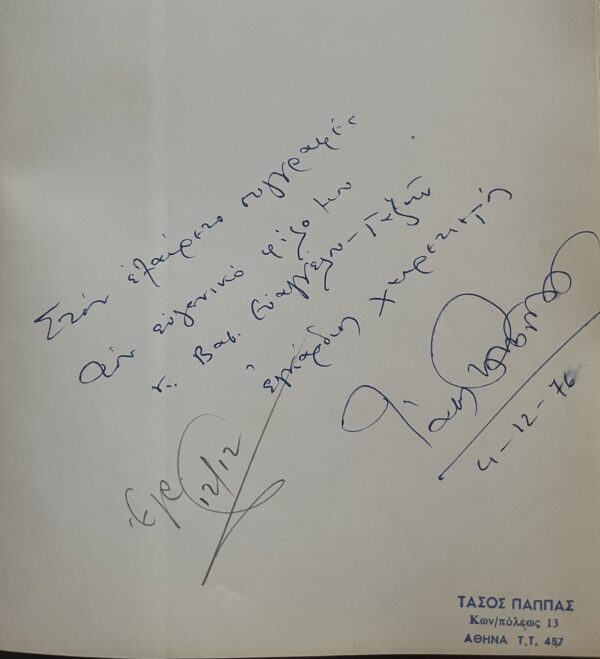 Στὸν ἐξαίρετο συγγραφέα
τὸν εὐγενικό φίλο μου
κ. Βασ. Εὐαγγέλου-Γαζῆν
ἐγκάρδιος χαιρετισμὸς
Τάσος Παππας
4-12-76
12/12
ΤΑΣΟΣ ΠΑΠΠΑΣ
Κων/πόλεως 13
ΑΘΗΝΑ Τ.Τ. 457